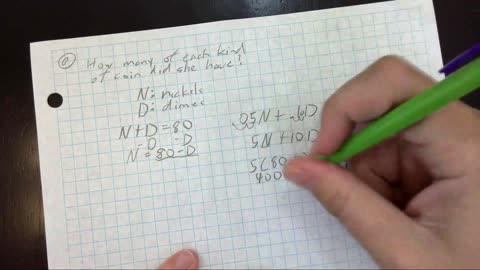 a How many of each kind
of coin did she have?
N: nickels
D: dimes
N+D=80
-D -D
N=80-D
.05N+.10D
5N+10D
5(80
400